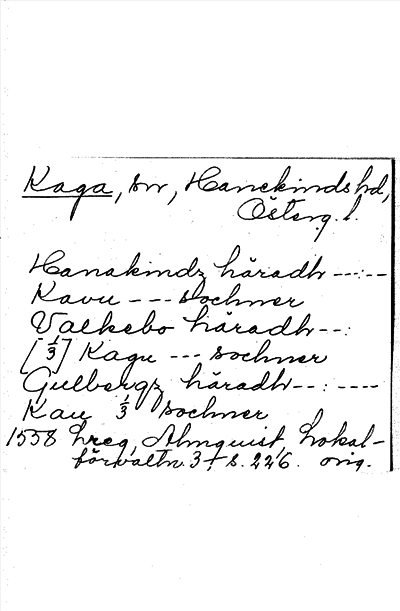 Kaga, sn, Hanekinds hd,
Österg. l.
Hanakindz häradh ---:--
Kavu --- sochner
Valkebo häradh --:
[1/3] Kagu --- sochner
Gulbergz häradh --:----
Kau 1/3 sochner
1558 hreg, Almquist, Lokal-
förvaltn. 3, s. 226. orig.